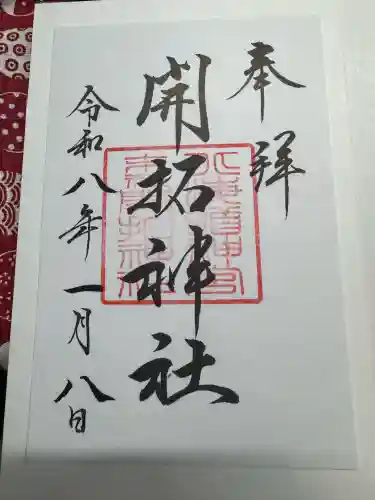 奉拝
開拓神社
令和八年一月八日
北海道神宮
末社開拓神社